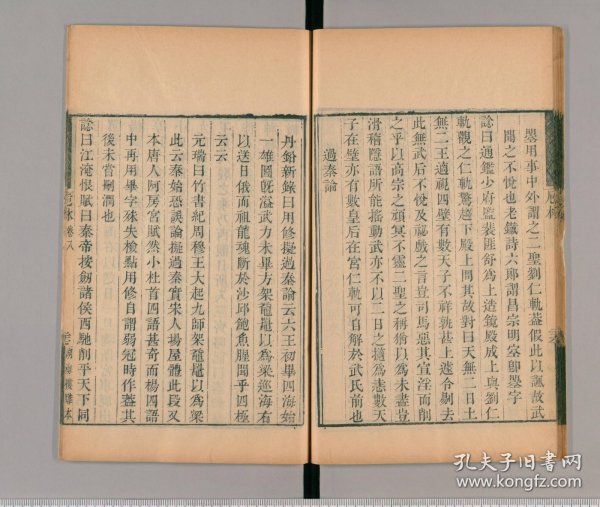 曌用事中外謂之二聖劉仁軌葢假此以諷故武
聞之不悅也老鐵詩六郎謂昌宗明空卽曌字
諗曰通鑑少府監裴匪舒為上造鏡殿成上與劉仁
軌觀之仁軌驚趨下殿上問其故對曰天無二日土
無二王適視四壁有數天子不祥孰甚上遽令剔去
此無武后不悅及秘戲之言豈司馬惡其宣淫而削
之乎以高宗之頑冥不靈二聖之稱猶以為未盡豈
滑稽隱語所能搖動武亦不以二日之擿為恚數天
子在壁亦有數皇后在宮仁軌可自解於武氏前也
過秦論
丹鉛新錄曰用修擬過秦論云六王初畢四海始
一雄圖旣溢武力未畢方架黿鼉以為梁巡海右
以送日俄而祖龍魂斷於沙邱鮑魚腥聞乎四極
云云
元瑞曰竹書紀周穆王大起九師架黿鼉以為梁
此云秦始恐誤論擬過秦實宋人場屋體此段又
本唐人阿房宮賦然小杜首四語甚奇而楊四語
中再用畢字殊失檢點用修自謂弱冠時作葢其
後未嘗刪潤也
諗曰江淹恨賦曰秦帝按劒諸侯西馳削乎天下同
卮林卷八
孔夫子旧书网
www.kongfz.com